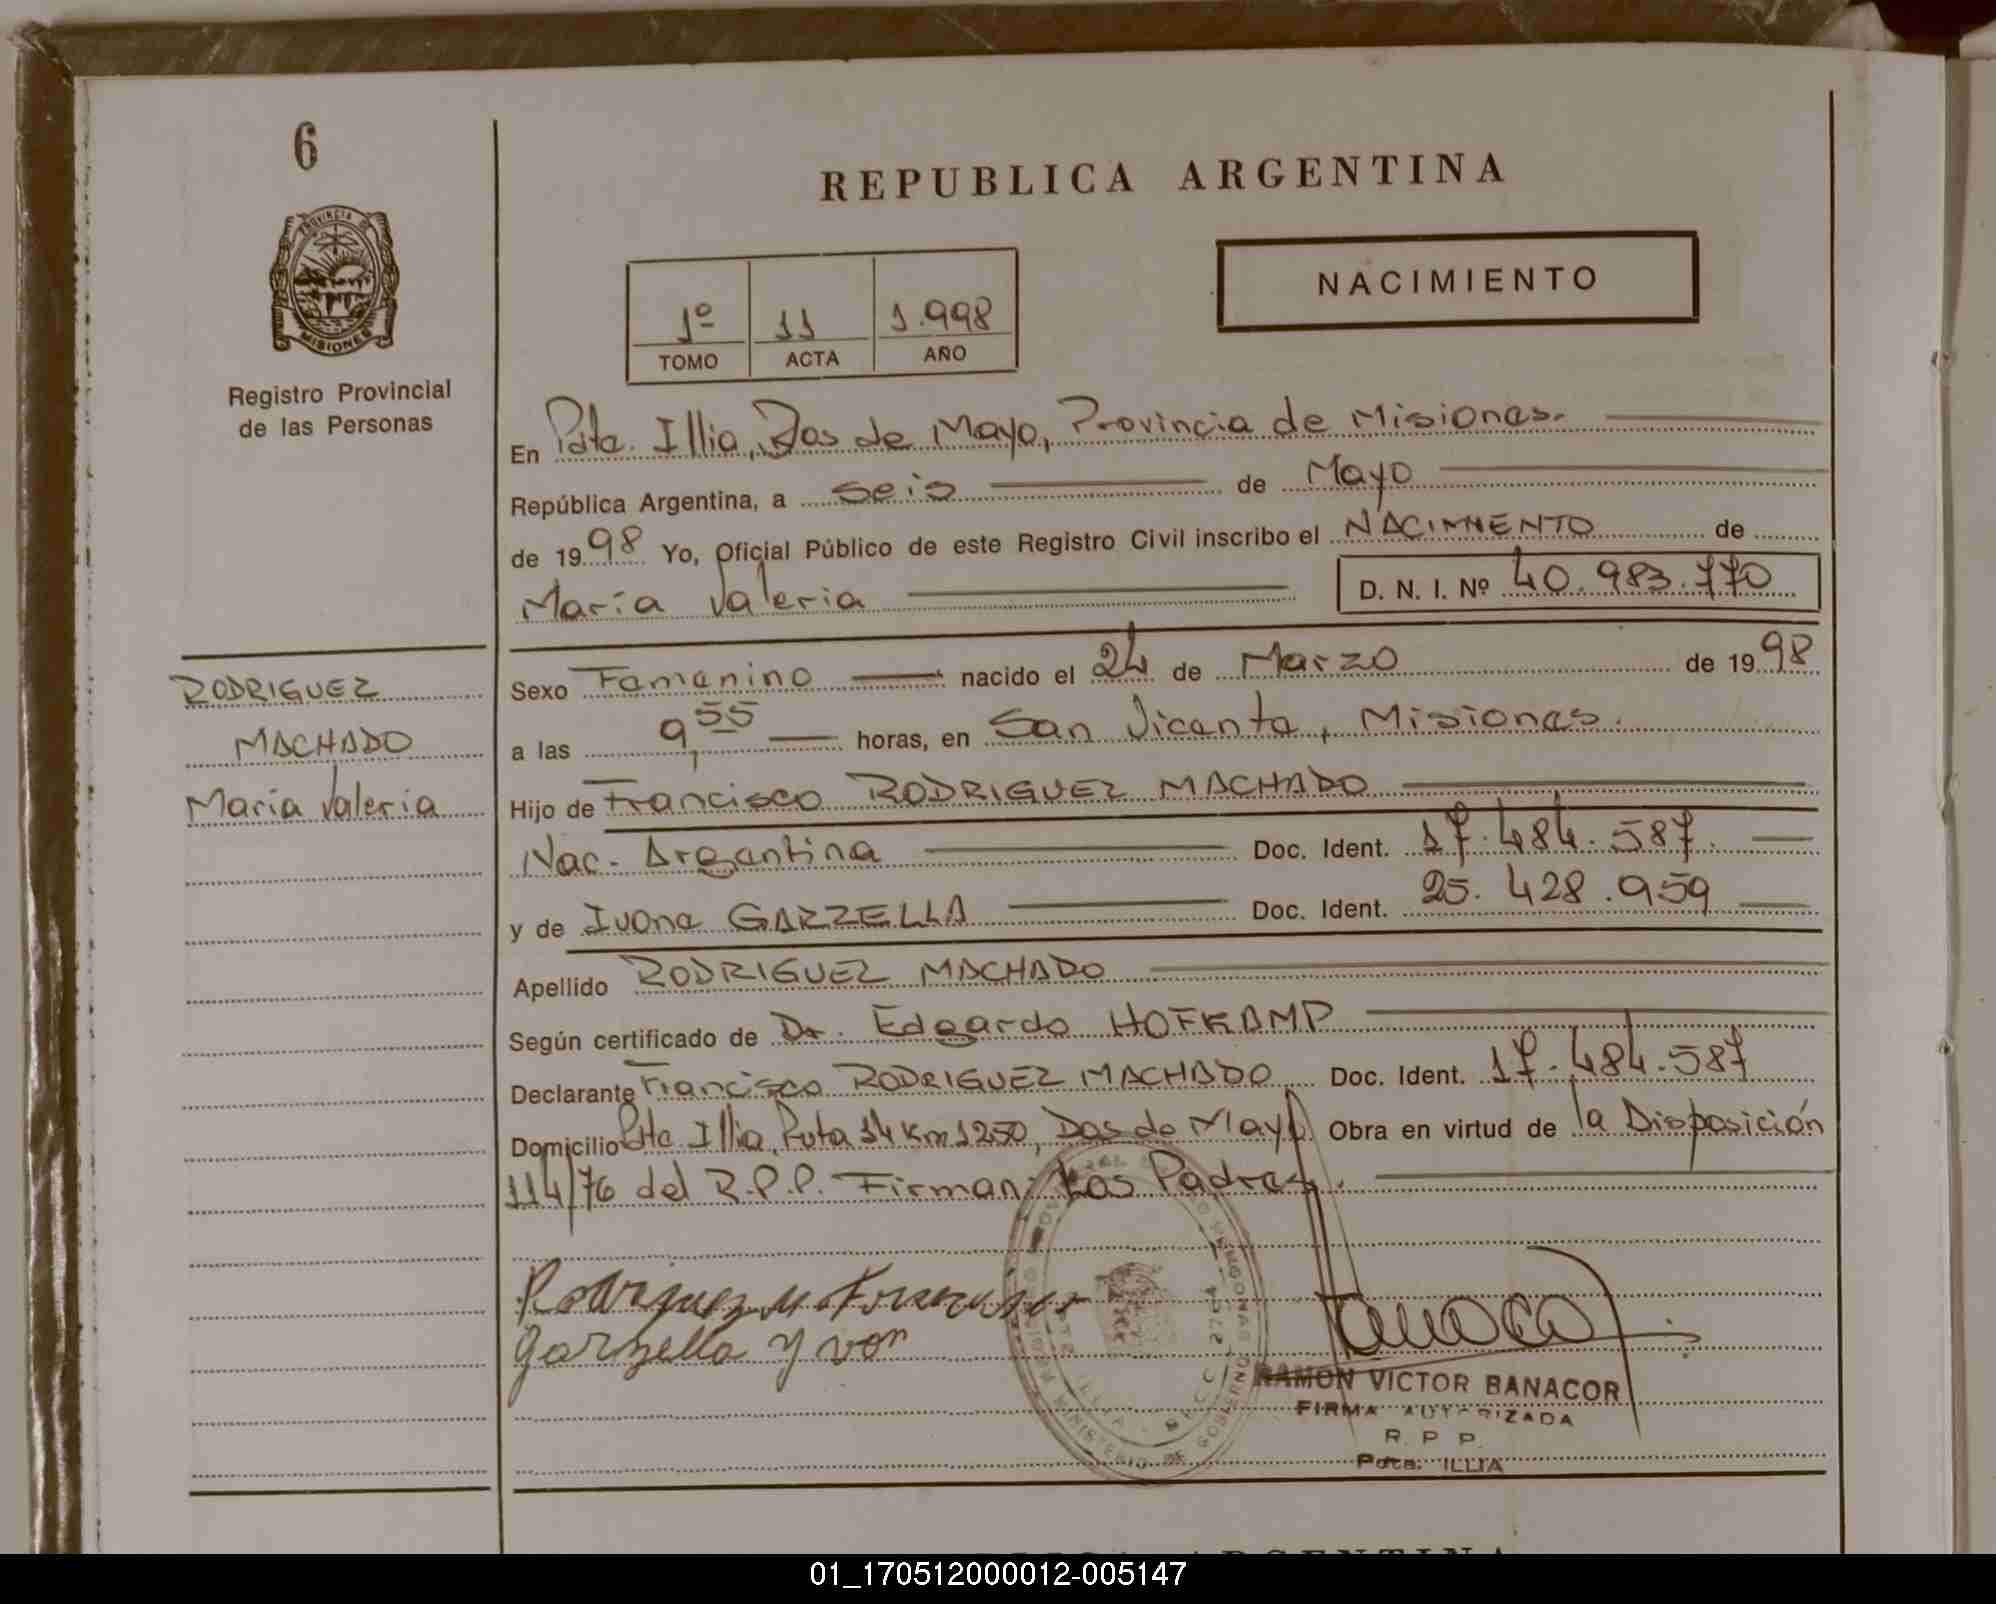 6
REPUBLICA ARGENTINA
PROVINCIA DE
MISIONES
Registro Provincial
de las Personas
1º 11 1.998
TOMO ACTA AÑO
NACIMIENTO
En Pdte. Illia, Dos de Mayo, Provincia de Misiones.
República Argentina, a seis de Mayo
de 1998 Yo, Oficial Público de este Registro Civil inscribo el NACIMIENTO de
María Valeria D. N. I. Nº 40.983.770
RODRIGUEZ
MACHADO
María Valeria
Sexo Femenino nacido el 24 de Marzo de 1998
a las 9,55 horas, en San Vicente, Misiones.
Hijo de Francisco RODRIGUEZ MACHADO
Nac. Argentina Doc. Ident. 17.484.587.
y de Ivone GARZELLA Doc. Ident. 25.428.959
Apellido RODRIGUEZ MACHADO
Según certificado de Dr. Edgardo HOFKAMP
Declarante Francisco RODRIGUEZ MACHADO Doc. Ident. 17.484.587
Domicilio Pdte Illia, Ruta 14 Km 1250, Dos de Mayo. Obra en virtud de la Disposición
114/76 del R.P.P. Firman: Los Padres.
Rodriguez M Francisco
Garzella Yvon
MINISTERIO DE GOBIERNO
RAMON VICTOR BANACOR
FIRMA AUTORIZADA
R. P. P.
Pdte. ILLIA
ARGENTINA
01_170512000012-005147